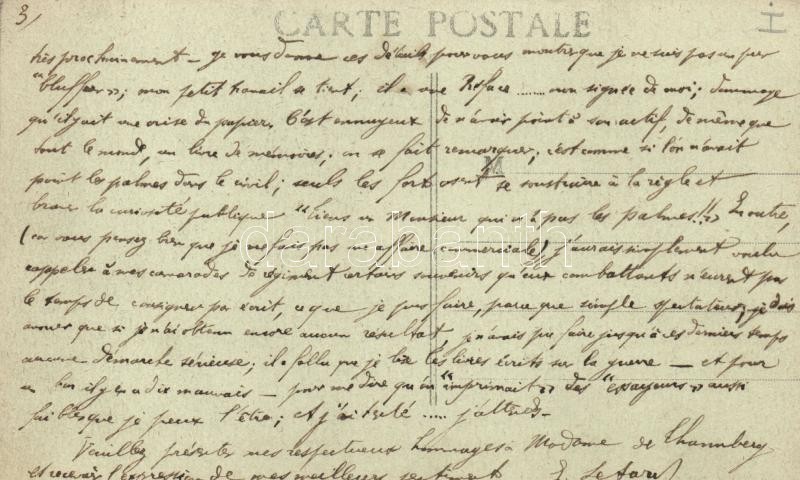 3)
CARTE POSTALE
très prochainement – je vous donne ces détails pour vous montrer que je ne suis pas un pur
"bluffeur"; mon petit travail se tient; il a une Préface ...... non signée de moi; dommage
qu'il y ait une crise du papier. C'est ennuyeux de n'avoir point à son actif, de même que
tout le monde, un livre de mémoires; on se fait remarquer; c'est comme si l'on n'avait
point les palmes dans le civil; seuls les forts osent se soustraire à la règle et
braver la curiosité publique "Tiens un Monsieur qui n'a pas les palmes!!" En outre,
(car vous pensez bien que je ne fais pas une affaire commerciale) j'aurais simplement voulu
rappeler à mes camarades de régiment certains souvenirs qu'eux combattants n'eurent pas
le temps de consigner par écrit, ce que je pus faire, parce que simple spectateur; je dois
avouer que si je n'ai obtenu encore aucun résultat je n'avais pu faire jusqu'à ces derniers temps
aucune démarche sérieuse; il a fallu que je lise les livres écrits sur la guerre – et pour
un bon il y en a dix mauvais – pour me dire qu'on "imprimait" des "essayeurs" aussi
faibles que je peux l'être; et j'ai hésité ..... j'attends.
Veuillez présenter mes respectueux hommages à Madame de
et recevoir l'expression de mes meilleurs sentiments
darabanth
M